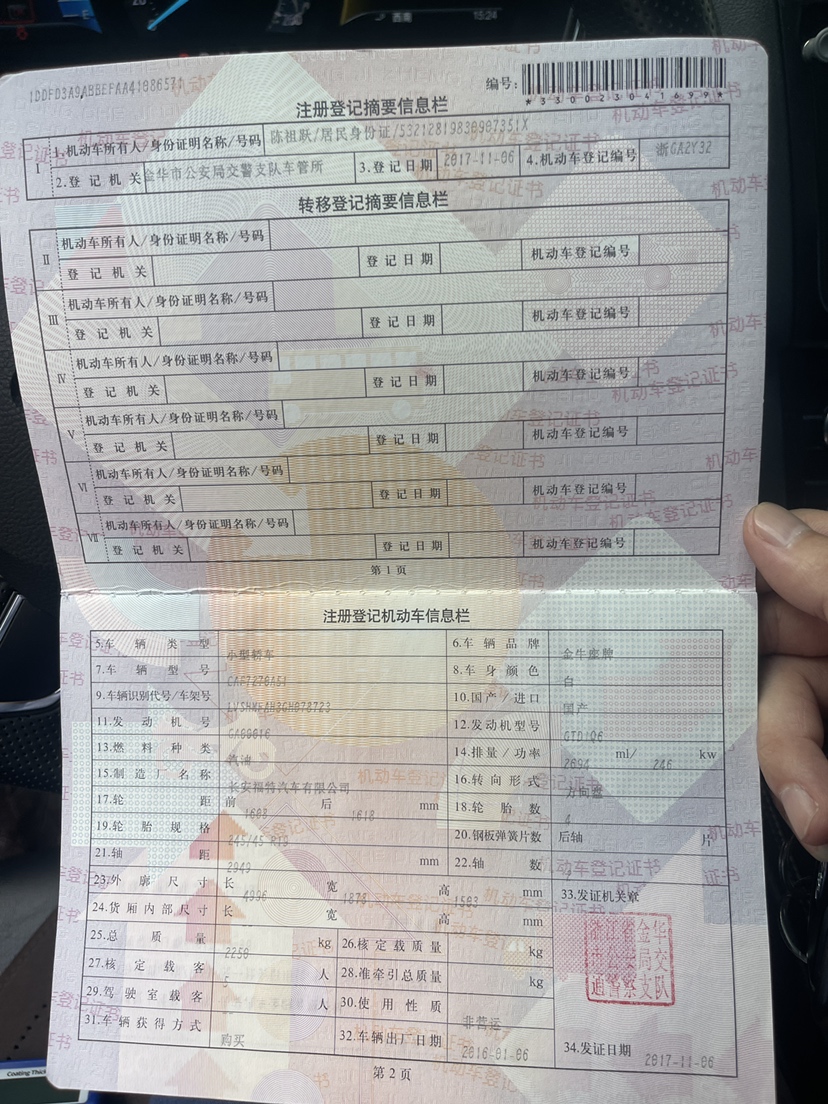 西奥 15:24
编号:
*330023041699*
注册登记摘要信息栏
I 1.机动车所有人/身份证明名称/号码 陈祖跃/居民身份证/53212819830907351X
2.登记机关 金华市公安局交警支队车管所 3.登记日期 2017-11-06 4.机动车登记编号 浙GA2Y32
转移登记摘要信息栏
II 机动车所有人/身份证明名称/号码
登记机关 登记日期 机动车登记编号
III 机动车所有人/身份证明名称/号码
登记机关 登记日期 机动车登记编号
IV 机动车所有人/身份证明名称/号码
登记机关 登记日期 机动车登记编号
V 机动车所有人/身份证明名称/号码
登记机关 登记日期 机动车登记编号
VI 机动车所有人/身份证明名称/号码
登记机关 登记日期 机动车登记编号
VII 机动车所有人/身份证明名称/号码
登记机关 登记日期 机动车登记编号
第1页
注册登记机动车信息栏
5.车辆类型 小型轿车 6.车辆品牌 金牛座牌
7.车辆型号 8.车身颜色 白
9.车辆识别代号/车架号 10.国产/进口 国产
11.发动机号 12.发动机型号
13.燃料种类 汽油 14.排量/功率 2694 ml/ 246 kw
15.制造厂名称 长安福特汽车有限公司 16.转向形式 方向盘
17.轮距 前 1608 后 1618 mm 18.轮胎数 4
19.轮胎规格 245/45 R19 20.钢板弹簧片数 后轴 片
21.轴距 2949 mm 22.轴数
23.外廓尺寸 长 4996 宽 1878 高 1503 mm 33.发证机关章
24.货厢内部尺寸 长 宽 高 mm
25.总质量 kg 26.核定载质量 kg
27.核定载客 人 28.准牵引总质量 kg
29.驾驶室载客 人 30.使用性质 非营运
31.车辆获得方式 购买 32.车辆出厂日期 2016-01-06 34.发证日期 2017-11-06
浙江省金华
市公安局交
通警察支队
第2页
Coating Thick